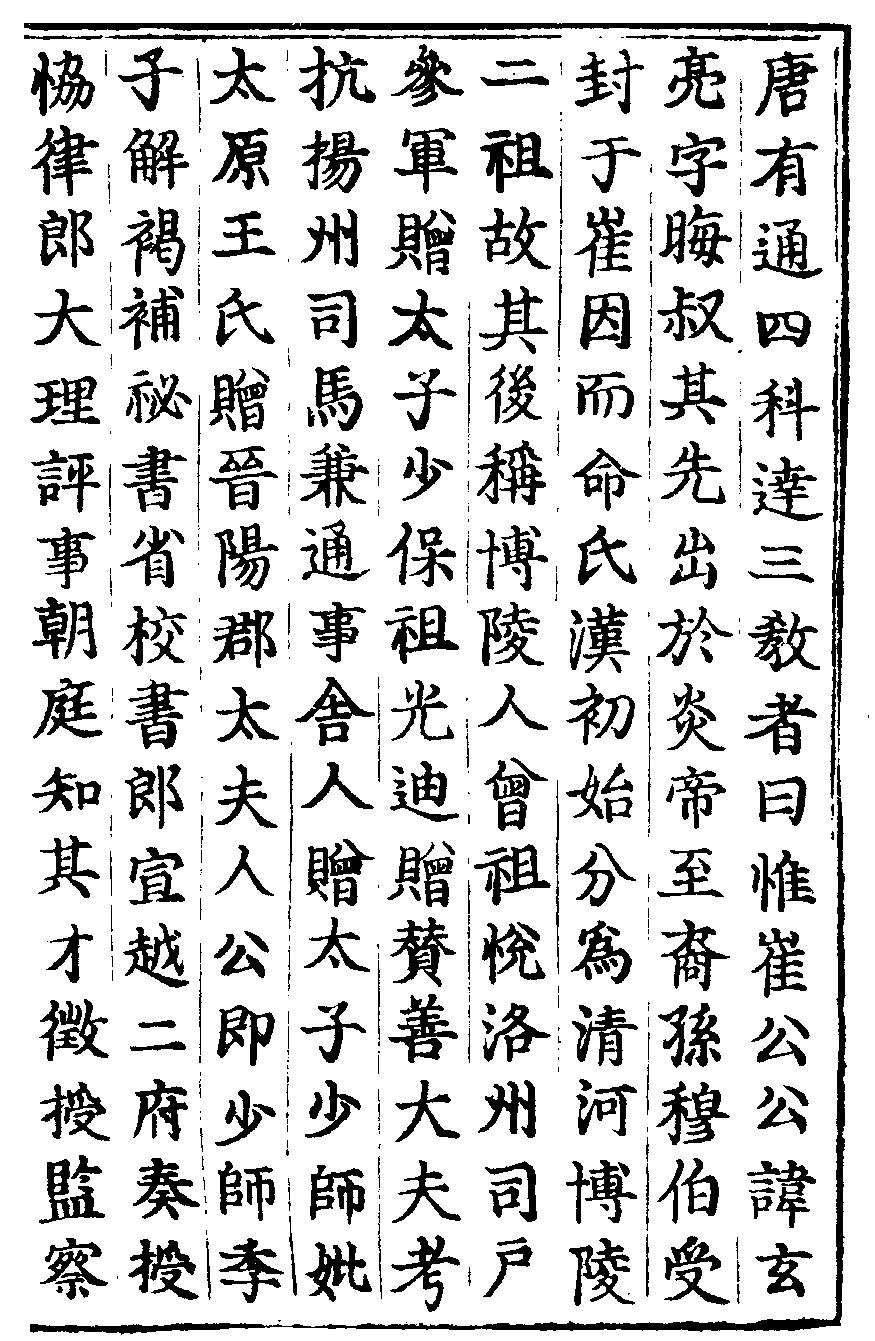 唐有通四科達三敎者曰惟崔公公諱玄
亮字晦叔其先出於炎帝至裔孫穆伯受
封于崔因而命氏漢初始分爲清河博陵
二祖故其後稱博陵人曾祖悅洛州司戶
參軍贈太子少保祖光迪贈賛善大夫考
抗揚州司馬兼通事舍人贈太子少師妣
太原王氏贈晉陽郡太夫人公即少師季
子解褐補祕書省校書郎宣越二府奏授
恊律郎大理評事朝庭知其才徵授監察